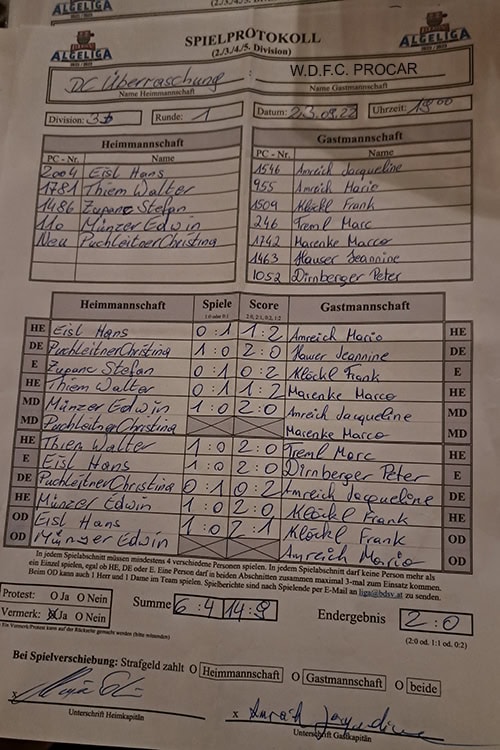 ALGELIGA
SPIELPROTOKOLL
(2./3./4./5. Division)
ALGELIGA
DC Überraschung
W.D.F.C. PROCAR
Name Heimmannschaft
Name Gastmannschaft
Division: 3
Runde: 1
Datum: 23.09.22
Uhrzeit: 19:00
Heimmannschaft
Gastmannschaft
PC - Nr. Name
PC - Nr. Name
2004 Eisl Hans
1546 Amreich Jacqueline
1781 Thiem Walter
955 Amreich Mario
1486 Zupanc Stefan
1509 Klöckl Frank
110 Münzer Edwin
246 Treml Marc
Neu Puchleitner Christina
1742 Marenke Marco
1463 Hauser Jeannine
1052 Dirnberger Peter
Heimmannschaft Spiele Score Gastmannschaft
1:0 oder 0:1 2:0, 2:1, 0:2, 1:2
HE Eisl Hans 0:1 1:2 Amreich Mario HE
DE Puchleitner Christina 1:0 2:0 Hauser Jeannine DE
E Zupanc Stefan 0:1 0:2 Klöckl Frank E
HE Thiem Walter 0:1 1:2 Marenke Marco HE
MD Münzer Edwin 1:0 2:0 Amreich Jacqueline MD
MD Puchleitner Christina Marenke Marco MD
HE Thiem Walter 1:0 2:0 Treml Marc HE
E Eisl Hans 1:0 2:0 Dirnberger Peter E
DE Puchleitner Christina 0:1 0:2 Amreich Jacqueline DE
HE Münzer Edwin 1:0 2:0 Klöckl Frank HE
OD Eisl Hans 1:0 2:1 Klöckl Frank OD
OD Münzer Edwin Amreich Mario OD
In jedem Spielabschnitt müssen mindestens 4 verschiedene Personen spielen. In jedem Spielabschnitt darf keine Person mehr als
ein Einzel spielen, egal ob HE, DE oder E. Eine Person darf in beiden Abschnitten zusammen maximal 3-mal zum Einsatz kommen.
Beim OD kann auch 1 Herr und 1 Dame im Team spielen. Spielberichte sind nach Spielende per E-Mail an liga@bdsv.at zu senden.
Protest: O Ja O Nein
Vermerk: O Ja O Nein
Summe 6:4 14:9
Endergebnis 2:0
Ein Vermerk/Protest kann auf der Rückseite gemacht werden (bitte anmerken)
(2:0 od. 1:1 od. 0:2)
Bei Spielverschiebung: Strafgeld zahlt O Heimmannschaft O Gastmannschaft O beide
x
x Amreich Jacqueline
Unterschrift Heimkapitän
Unterschrift Gastkapitän